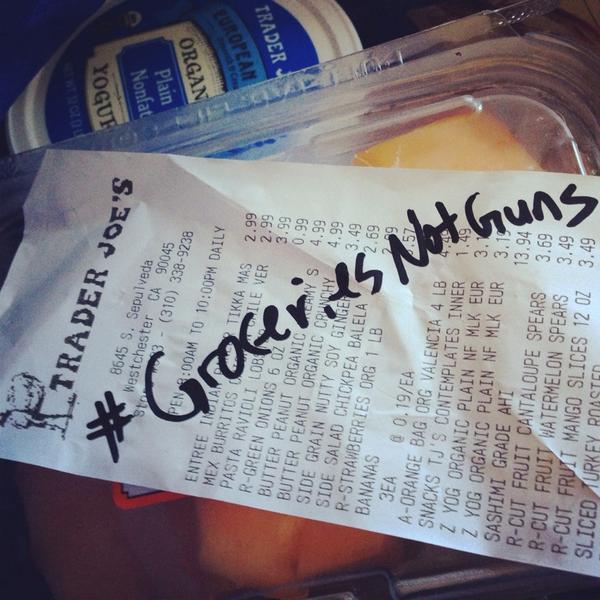 TRADER J
EUROPEAN
ORGAN
YOGUR
Plain
Nonfat
TRADER JOE'S
8645 S. Sepulveda
Westchester CA 90045
(310) 338-9238
OPEN 8:00AM TO 10:00PM DAILY
#GroceriesNotGuns
ENTREE INDIA TIKKA MAS 2.99
MEX BURRITOS LE VER 2.99
PASTA RAVIOLI LOBS 3.99
R-GREEN ONIONS 6 OZ 0.99
BUTTER PEANUT ORGANIC CREAMY S 4.99
BUTTER PEANUT ORGANIC CRUNCHY 4.99
SIDE GRAIN NUTTY SOY GINGER 3.49
SIDE SALAD CHICKPEA BALELA 2.69
R-STRAWBERRIES ORG 1 LB
BANANAS .57
3EA @ 0.19/EA
A-ORANGE BAG ORG VALENCIA 4 LB
SNACKS TJ'S CONTEMPLATES INNER 1.49
Z YOG ORGANIC PLAIN NF MLK EUR
Z YOG ORGANIC PLAIN NF MLK EUR
SASHIMI GRADE AHI 13.94
R-CUT FRUIT CANTALOUPE SPEARS 3.69
R-CUT FRUIT WATERMELON SPEARS 3.49
R-CUT FRUIT MANGO SLICES 12 OZ 3.49
SLICED TURKEY ROASTED